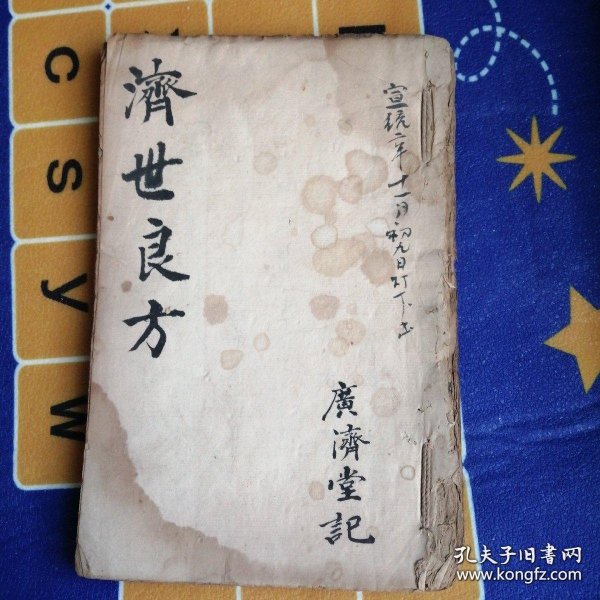 濟世良方
宣統二年十一月初九日訂下
廣濟堂記
C
S
y
W
孔夫子旧书网
www.kongfz.com